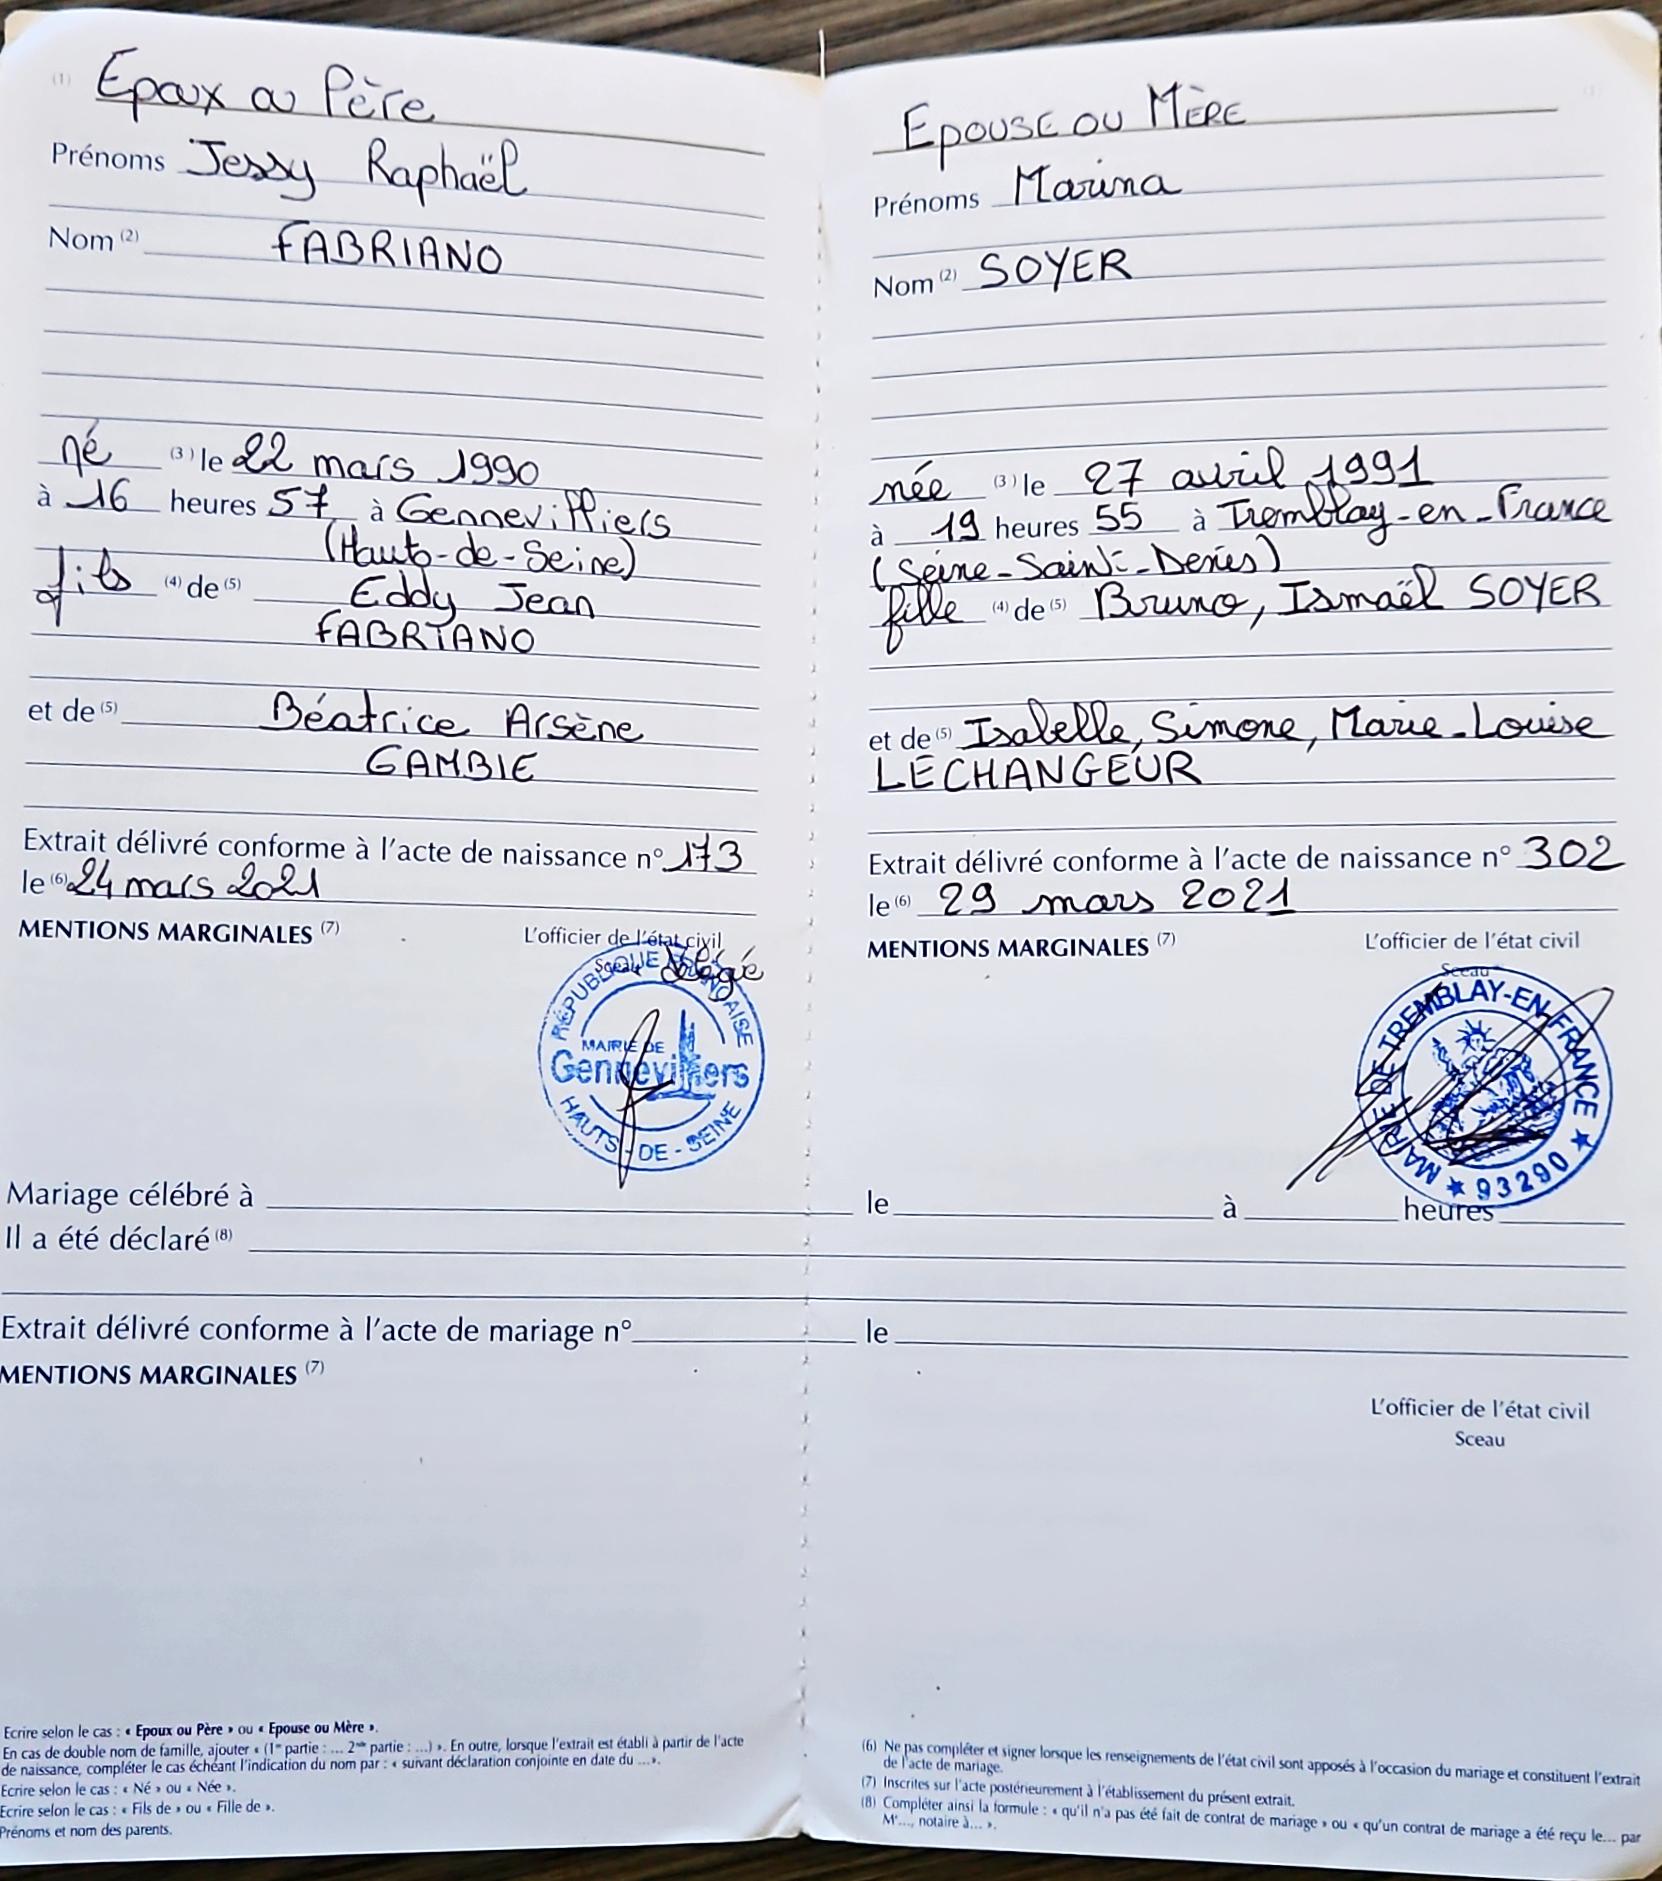 (1) Epoux ou Père
Prénoms Jessy Raphaël
Nom (2) FABRIANO
né (3) le 22 mars 1990
à 16 heures 57 à Gennevilliers
(Hauts-de-Seine)
fils (4) de (5) Eddy Jean
FABRIANO
et de (5) Béatrice Arsène
GAMBIE
Extrait délivré conforme à l'acte de naissance n° 173
le (6) 24 mars 2021
MENTIONS MARGINALES (7)
L'officier de l'état civil
Sceau
RÉPUBLIQUE FRANÇAISE
MAIRIE DE
Gennevilliers
HAUTS-DE-SEINE
(1)
EPOUSE OU MÈRE
Prénoms Marina
Nom (2) SOYER
née (3) le 27 avril 1991
à 19 heures 55 à Tremblay-en-France
(Seine-Saint-Denis)
fille (4) de (5) Bruno, Ismaël SOYER
et de (5) Isabelle, Simone, Marie-Louise
LECHANGEUR
Extrait délivré conforme à l'acte de naissance n° 302
le (6) 29 mars 2021
MENTIONS MARGINALES (7)
L'officier de l'état civil
Sceau
MAIRIE DE TREMBLAY-EN-FRANCE
★ 93290 ★
Mariage célébré à le à heures
Il a été déclaré (8)
Extrait délivré conforme à l'acte de mariage n° le
MENTIONS MARGINALES (7)
L'officier de l'état civil
Sceau
Ecrire selon le cas : « Epoux ou Père » ou « Epouse ou Mère ».
En cas de double nom de famille, ajouter « (1re partie : ... 2nde partie : ...) ». En outre, lorsque l'extrait est établi à partir de l'acte
de naissance, compléter le cas échéant l'indication du nom par : « suivant déclaration conjointe en date du ... ».
Ecrire selon le cas : « Né » ou « Née ».
Ecrire selon le cas : « Fils de » ou « Fille de ».
Prénoms et nom des parents.
(6) Ne pas compléter et signer lorsque les renseignements de l'état civil sont apposés à l'occasion du mariage et constituent l'extrait
de l'acte de mariage.
(7) Inscrites sur l'acte postérieurement à l'établissement du présent extrait.
(8) Compléter ainsi la formule : « qu'il n'a pas été fait de contrat de mariage » ou « qu'un contrat de mariage a été reçu le... par
Me..., notaire à... ».